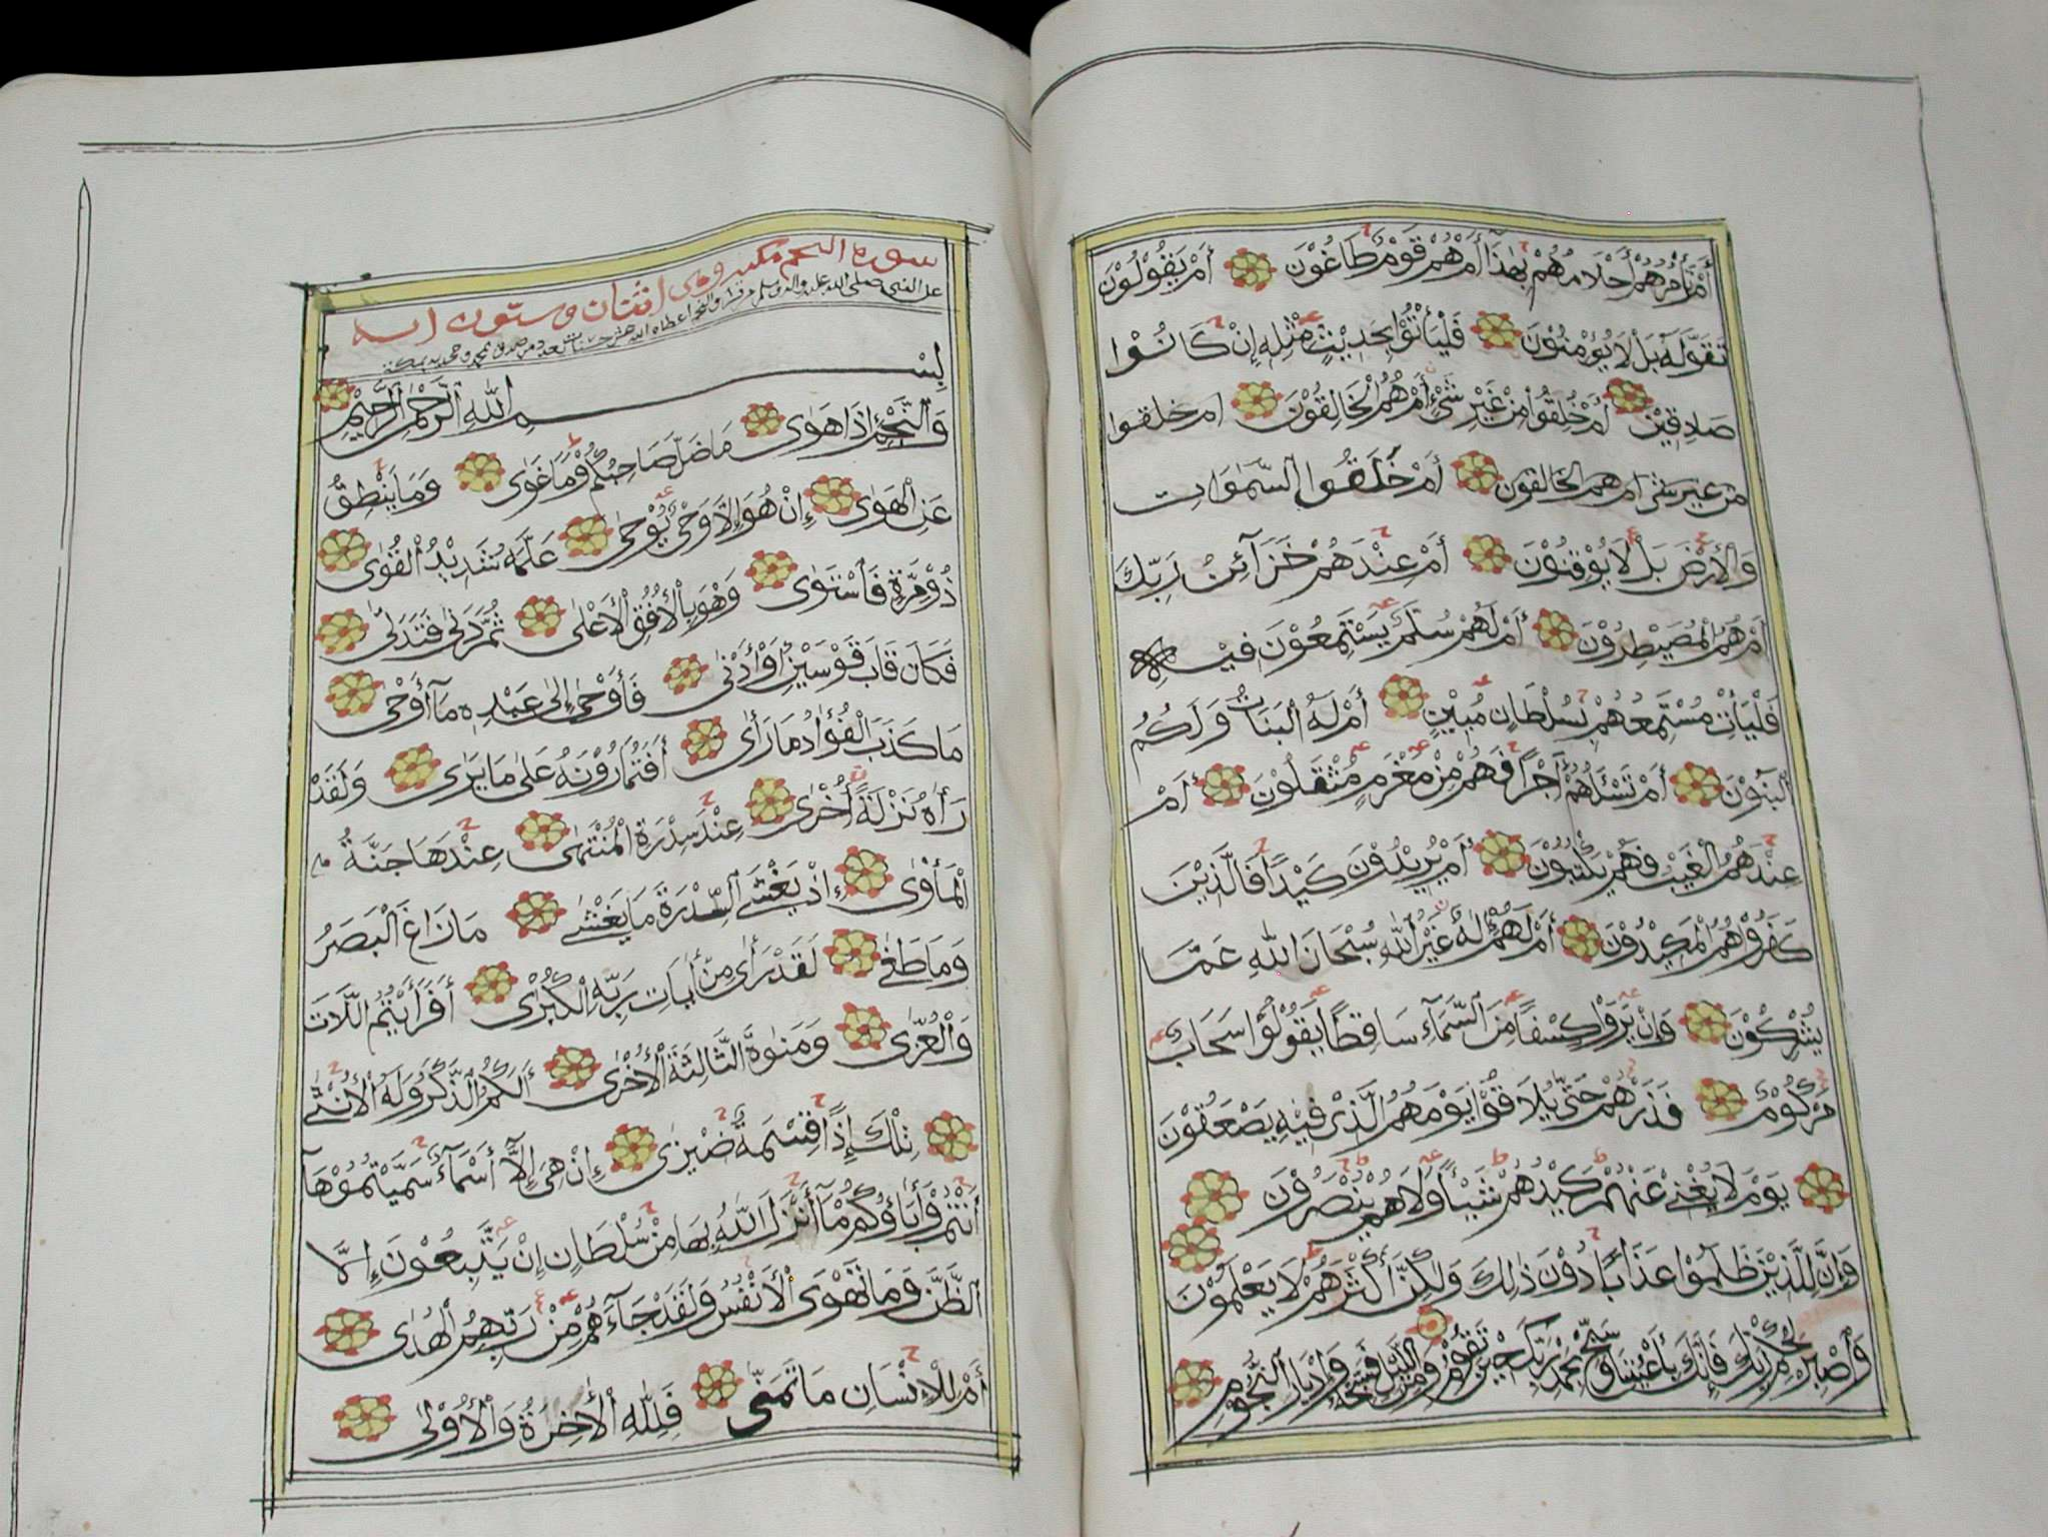 أَمْ تَأْمُرُهُمْ أَحْلَامُهُمْ بِهٰذَا أَمْ هُمْ قَوْمٌ طَاغُوْنَ أَمْ يَقُوْلُوْنَ
تَقَوَّلَهُ بَلْ لَا يُؤْمِنُوْنَ فَلْيَأْتُوْا بِحَدِيْثٍ مِّثْلِهِ إِنْ كَانُوْا
صَادِقِيْنَ أَمْ خُلِقُوْا مِنْ غَيْرِ شَيْءٍ أَمْ هُمُ الْخَالِقُوْنَ ام خلقوا
من غير شي ام هم الخالقون أَمْ خَلَقُوا السَّمٰوَات
وَالْأَرْضَ بَلْ لَا يُوْقِنُوْنَ أَمْ عِنْدَهُمْ خَزَآئِنُ رَبِّكَ
أَمْ هُمُ الْمُصَيْطِرُوْنَ أَمْ لَهُمْ سُلَّمٌ يَسْتَمِعُوْنَ فِيْهِ
فَلْيَأْتِ مُسْتَمِعُهُمْ بِسُلْطَانٍ مُبِيْنٍ أَمْ لَهُ الْبَنَاتُ وَلَكُمُ
الْبَنُوْنَ أَمْ تَسْئَلُهُمْ أَجْرًا فَهُمْ مِنْ مَغْرَمٍ مُثْقَلُوْنَ أَمْ
عِنْدَهُمُ الْغَيْبُ فَهُمْ يَكْتُبُوْنَ أَمْ يُرِيْدُوْنَ كَيْدًا فَالَّذِيْنَ
كَفَرُوْا هُمُ الْمَكِيْدُوْنَ أَمْ لَهُمْ إِلٰهٌ غَيْرُ اللهِ سُبْحَانَ اللهِ عَمَّا
يُشْرِكُوْنَ وَإِنْ يَّرَوْا كِسْفًا مِنَ السَّمَآءِ سَاقِطًا يَقُوْلُوْا سَحَابٌ
مَرْكُوْمٌ فَذَرْهُمْ حَتّٰى يُلَاقُوْا يَوْمَهُمُ الَّذِيْ فِيْهِ يَصْعَقُوْنَ
يَوْمَ لَا يُغْنِيْ عَنْهُمْ كَيْدُهُمْ شَيْئًا وَلَا هُمْ يُنْصَرُوْنَ
وَإِنَّ لِلَّذِيْنَ ظَلَمُوْا عَذَابًا دُوْنَ ذٰلِكَ وَلٰكِنَّ أَكْثَرَهُمْ لَا يَعْلَمُوْنَ
وَاصْبِرْ لِحُكْمِ رَبِّكَ فَإِنَّكَ بِأَعْيُنِنَا وَسَبِّحْ بِحَمْدِ رَبِّكَ حِيْنَ تَقُوْمُ وَمِنَ اللَّيْلِ فَسَبِّحْهُ وَإِدْبَارَ النُّجُوْمِ
سورة النجم مكية وهي اثنتان وستون اية
عن النبي صلى الله عليه واله وسلم من قرا والنجم اعطاه الله عشر حسنات بعدد من صدق بمحمد وجحد به بمكة
بِسْمِ اللهِ الرَّحْمٰنِ الرَّحِيْمِ
وَالنَّجْمِ إِذَا هَوٰى مَا ضَلَّ صَاحِبُكُمْ وَمَا غَوٰى وَمَا يَنْطِقُ
عَنِ الْهَوٰى إِنْ هُوَ إِلَّا وَحْيٌ يُوْحٰى عَلَّمَهُ شَدِيْدُ الْقُوٰى
ذُوْ مِرَّةٍ فَاسْتَوٰى وَهُوَ بِالْأُفُقِ الْأَعْلٰى ثُمَّ دَنٰى فَتَدَلّٰى
فَكَانَ قَابَ قَوْسَيْنِ أَوْ أَدْنٰى فَأَوْحٰى إِلٰى عَبْدِهِ مَآ أَوْحٰى
مَا كَذَبَ الْفُؤَادُ مَا رَأٰى أَفَتُمَارُوْنَهُ عَلٰى مَا يَرٰى وَلَقَدْ
رَآهُ نَزْلَةً أُخْرٰى عِنْدَ سِدْرَةِ الْمُنْتَهٰى عِنْدَهَا جَنَّةُ
الْمَأْوٰى إِذْ يَغْشَى السِّدْرَةَ مَا يَغْشٰى مَا زَاغَ الْبَصَرُ
وَمَا طَغٰى لَقَدْ رَأٰى مِنْ اٰيَاتِ رَبِّهِ الْكُبْرٰى أَفَرَأَيْتُمُ اللَّاتَ
وَالْعُزّٰى وَمَنٰوةَ الثَّالِثَةَ الْأُخْرٰى أَلَكُمُ الذَّكَرُ وَلَهُ الْأُنْثٰى
تِلْكَ إِذًا قِسْمَةٌ ضِيْزٰى إِنْ هِيَ إِلَّآ أَسْمَآءٌ سَمَّيْتُمُوْهَآ
أَنْتُمْ وَآبَاؤُكُمْ مَآ أَنْزَلَ اللهُ بِهَا مِنْ سُلْطَانٍ إِنْ يَتَّبِعُوْنَ إِلَّا
الظَّنَّ وَمَا تَهْوَى الْأَنْفُسُ وَلَقَدْ جَآءَهُمْ مِنْ رَبِّهِمُ الْهُدٰى
أَمْ لِلْإِنْسَانِ مَا تَمَنّٰى فَلِلّٰهِ الْأٰخِرَةُ وَالْأُوْلٰى